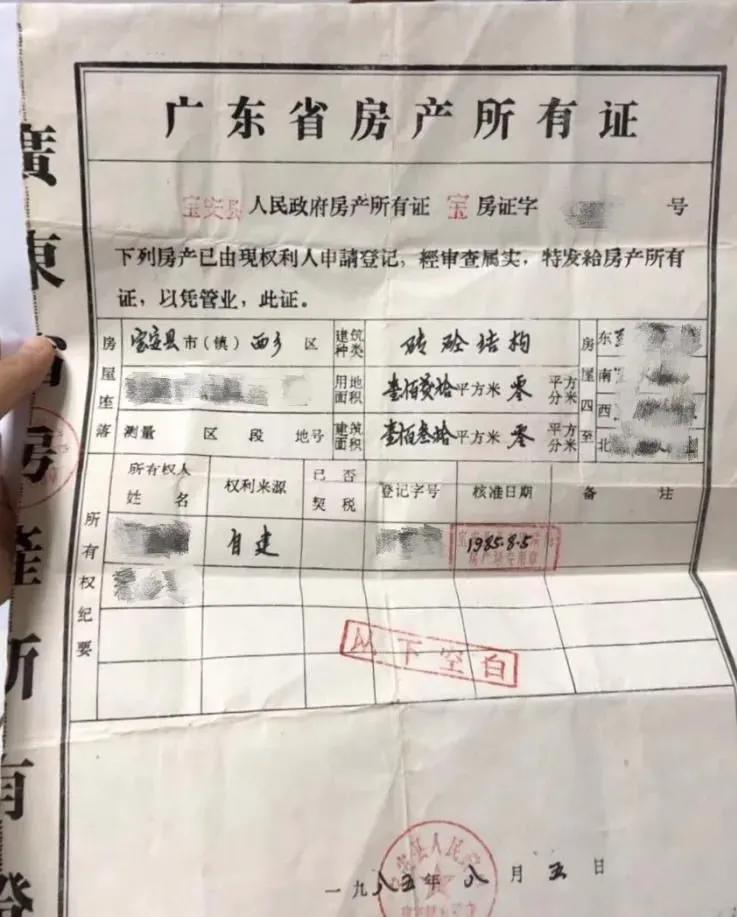 广东省房产所有证
宝安县人民政府房产所有证 宝房证字 号
下列房产已由现权利人申請登记，經审查属实，特发給房产所有
证，以凭管业，此证。
房屋座落 宝安县市（镇）西乡区 建筑种类 砖砼结构 房屋四至 东
用地面积 壹佰贰拾平方米零平方分米 南
西
测量 区 段 地号 建筑面积 壹佰叁拾平方米零平方分米 北
所有权纪要 所有权人姓名 权利来源 已否契税 登记字号 核准日期 备注
自建 1985.8.5
以下空白
一九八五年八月五日
廣東省房産所有證